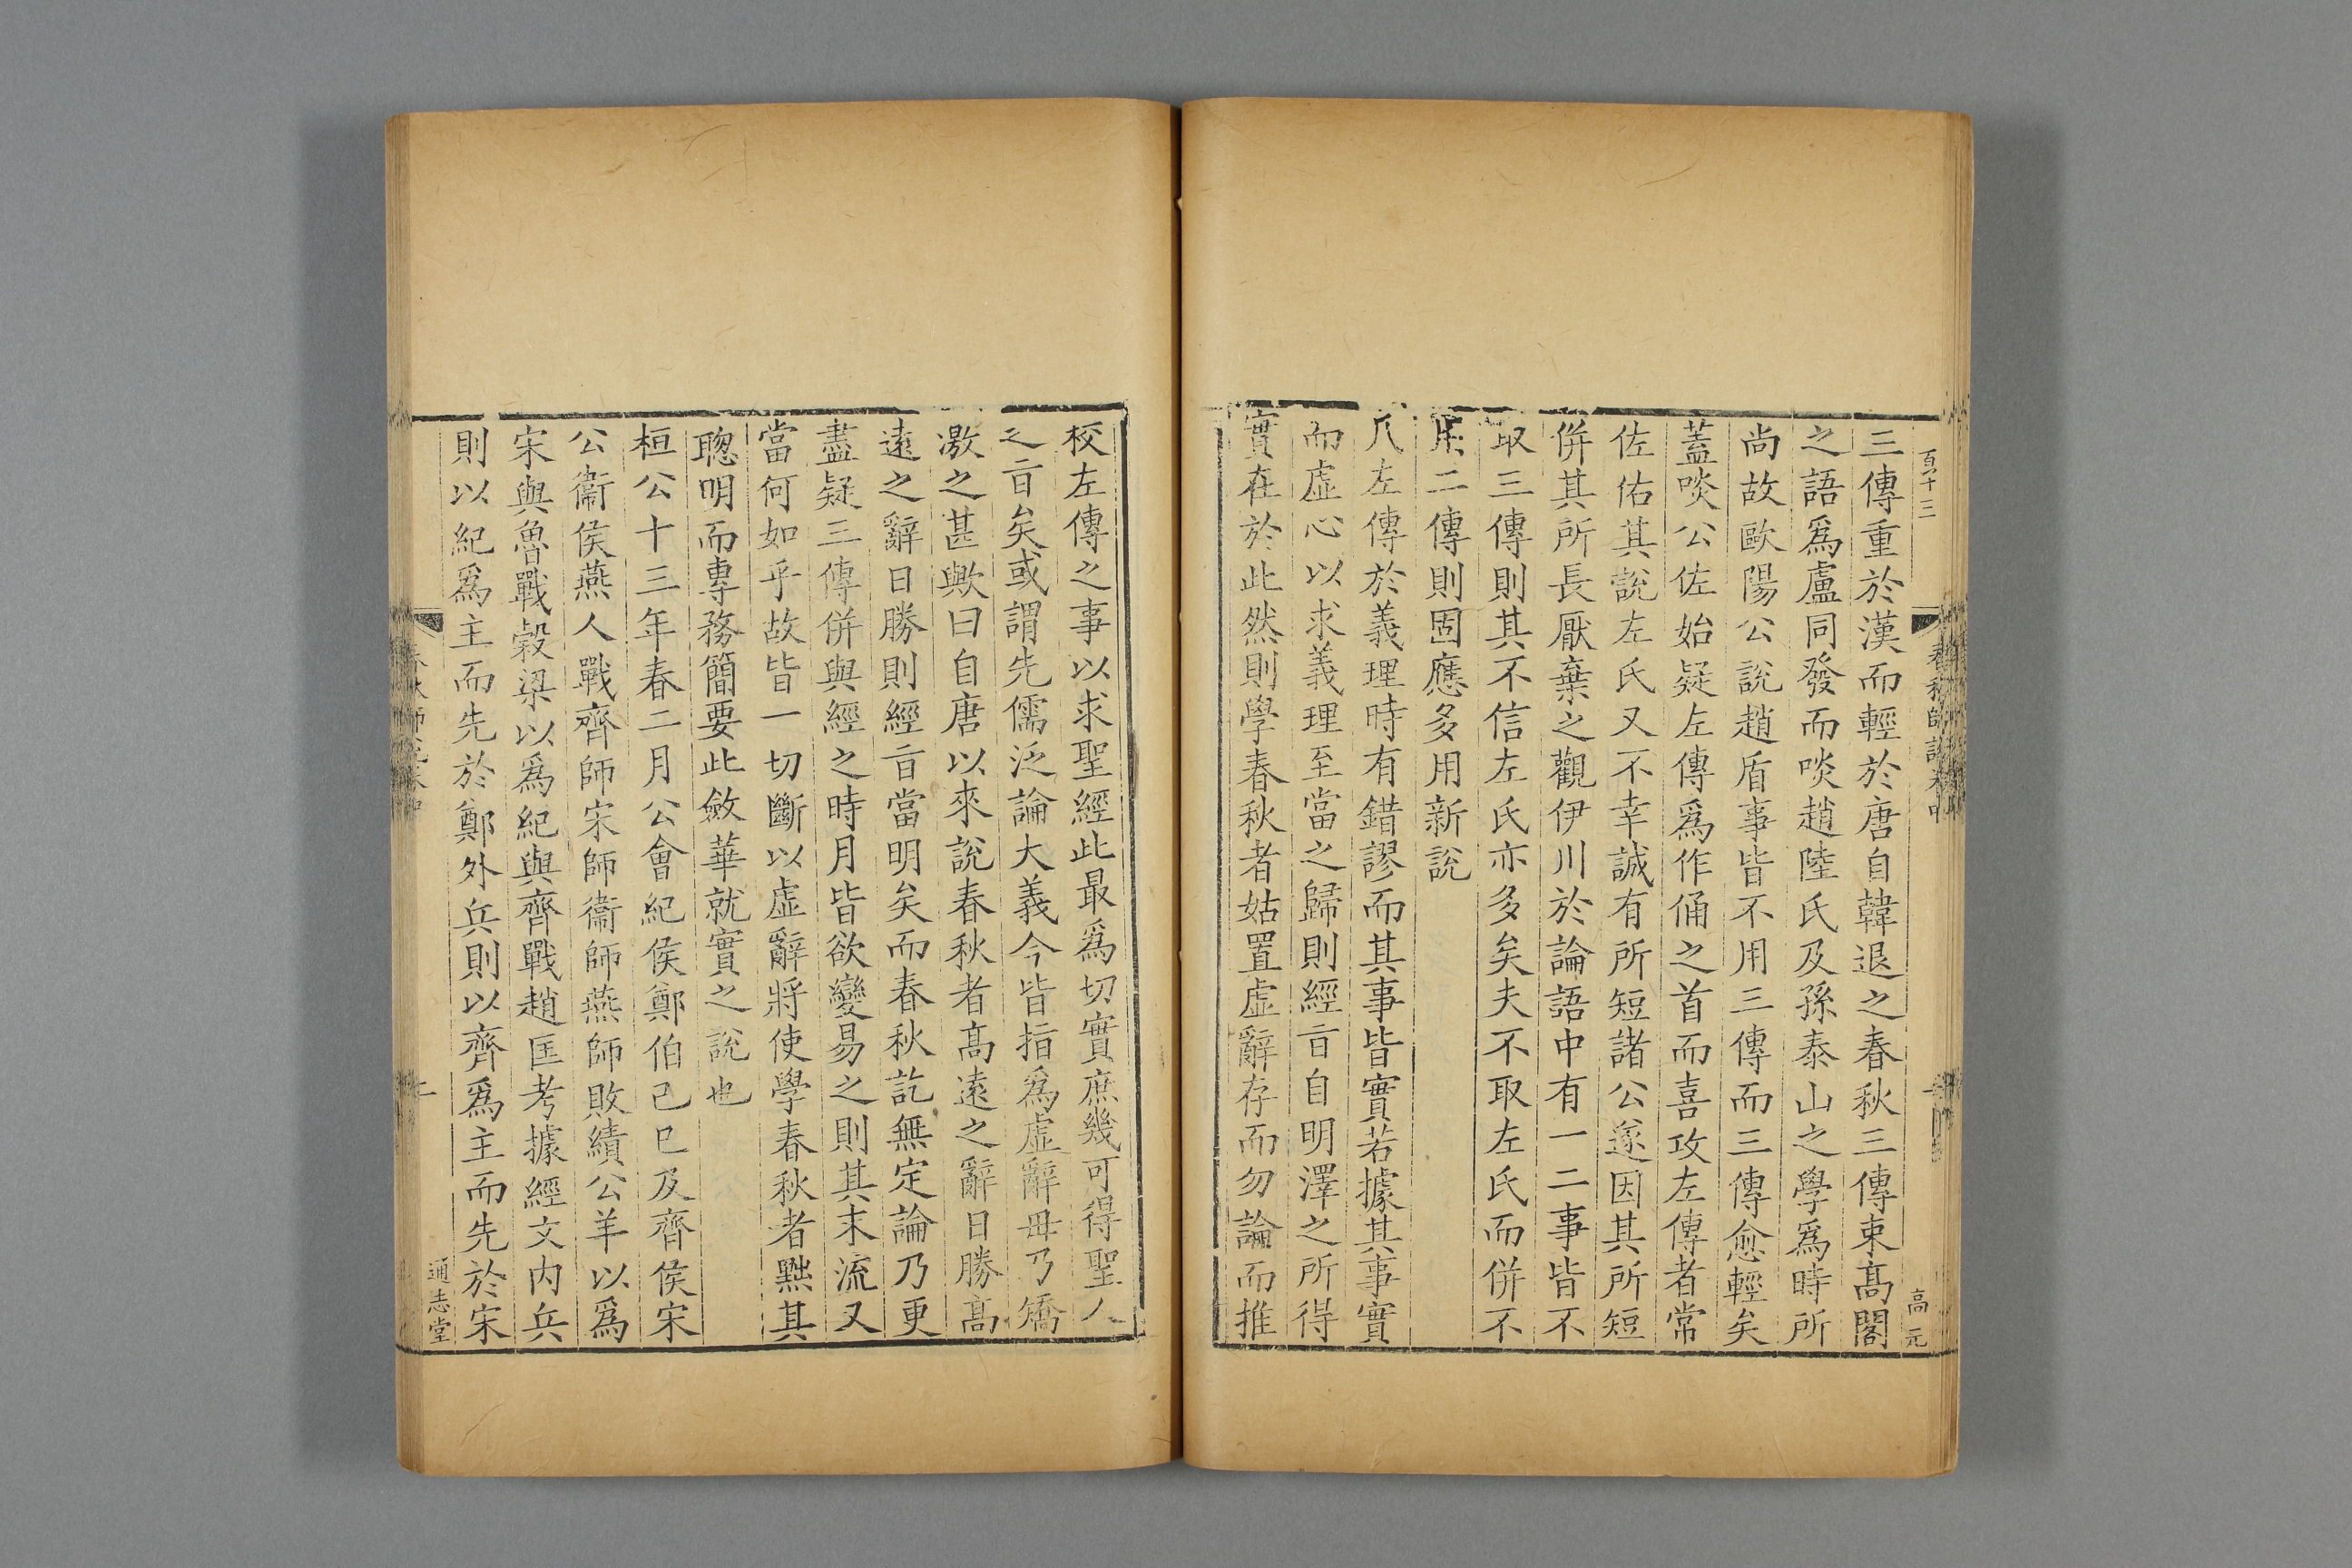 百十三
春秋師說卷中
高元
三傳重於漢而輕於唐自韓退之春秋三傳束髙閣
之語爲盧同發而啖趙陸氏及孫泰山之學爲時所
尚故歐陽公說趙盾事皆不用三傳而三傳愈輕矣
蓋啖公佐始疑左傳爲作俑之首而喜攻左傳者常
佐佑其說左氏又不幸誠有所短諸公遂因其所短
併其所長厭棄之觀伊川於論語中有一二事皆不
取三傳則其不信左氏亦多矣夫不取左氏而併不
用二傳則固應多用新說
凡左傳於義理時有錯謬而其事皆實若據其事實
而虛心以求義理至當之歸則經㫖自明澤之所得
實在於此然則學春秋者姑置虛辭存而勿論而推
校左傳之事以求聖經此最爲切實庶幾可得聖人
之㫖矣或謂先儒泛論大義今皆指爲虛辭毋乃矯
激之甚歟曰自唐以來說春秋者髙遠之辭日勝髙
遠之辭日勝則經㫖當明矣而春秋訖無定論乃更
盡疑三傳併與經之時月皆欲變易之則其末流又
當何如乎故皆一切斷以虛辭將使學春秋者黜其
聰明而專務簡要此斂華就實之說也
桓公十三年春二月公會紀侯鄭伯己巳及齊侯宋
公衞侯燕人戰齊師宋師衞師燕師敗績公羊以爲
宋與魯戰穀梁以爲紀與齊戰趙匡考據經文内兵
則以紀爲主而先於鄭外兵則以齊爲主而先於宋
春秋師說卷中
通志堂